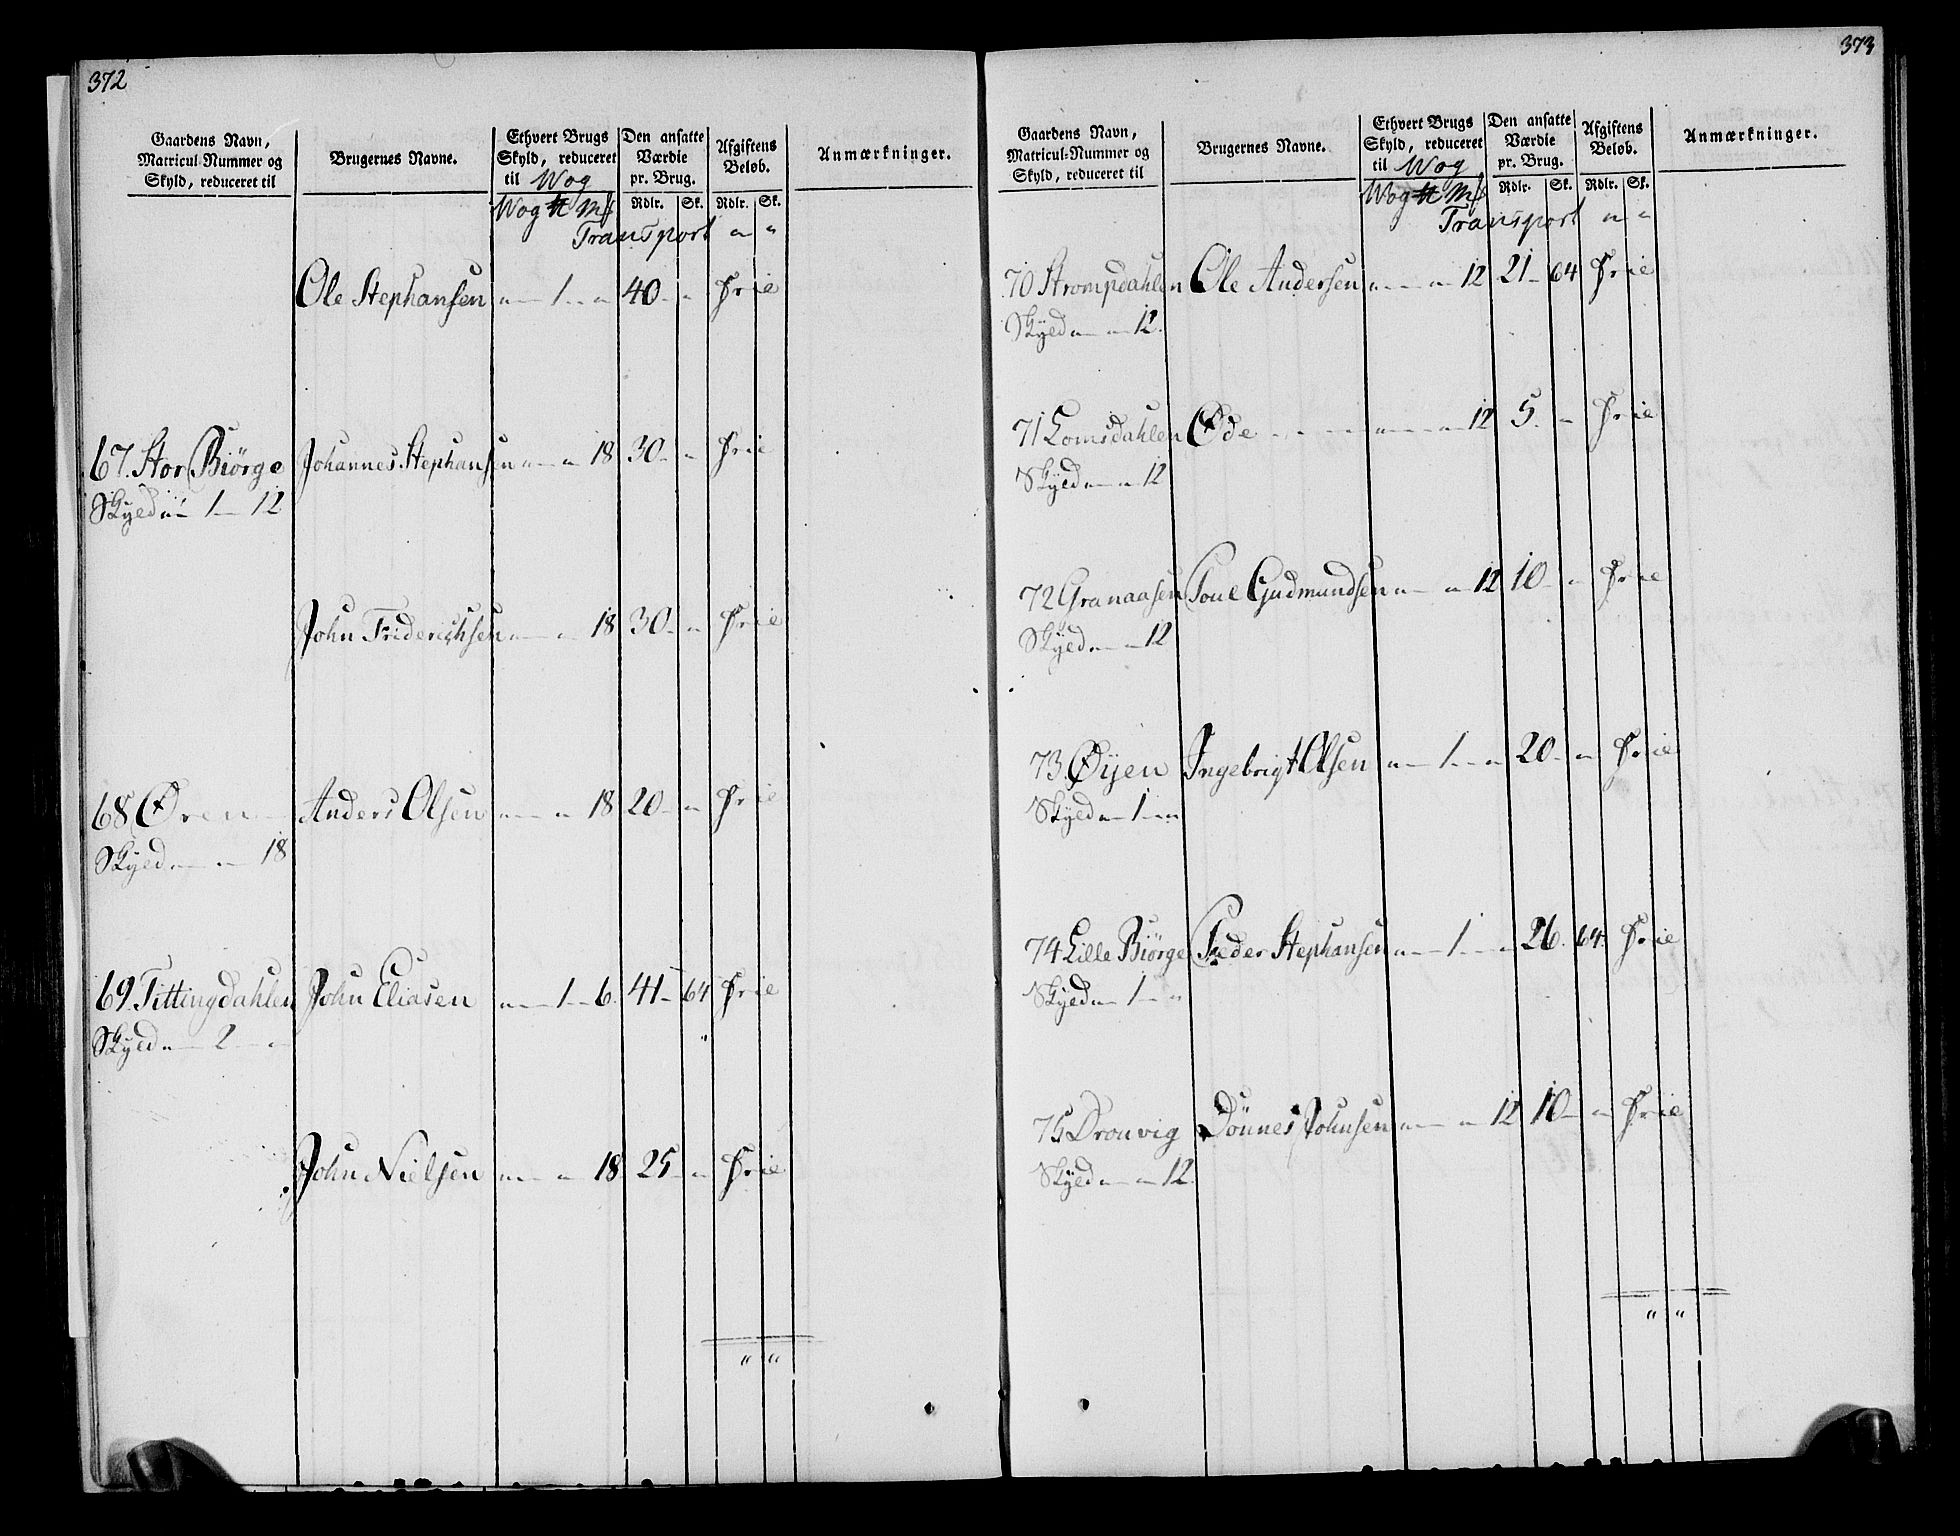 372
Gaardens Navn, Matricul-Nummer og Skyld, reduceret til
Brugernes Navne.
Ethvert Brugs Skyld, reduceret til Wog
Den ansatte Værdie pr. Brug.
Afgiftens Beløb.
Anmærkninger.
Wog ℔ Mk Rdlr. Sk. Rdlr. Sk.
Transport " "
Ole Stephansen " 1 " 40 " Frie
67. Stor Biörge Johannes Stephansen " " 18 30 " Frie
Skyld " 1 12
John Friderichsen " " 18 30 " Frie
68 Øren Anders Olsen " " 18 20 " Frie
Skyld " " 18
69. Tittingdahlen John Eliasen " 1 6. 41 64 Frie
Skyld " 2 "
John Nielsen " " 18 25 " Frie
" "
373
Gaardens Navn, Matricul-Nummer og Skyld, reduceret til
Brugernes Navne.
Ethvert Brugs Skyld, reduceret til Wog
Den ansatte Værdie pr. Brug.
Afgiftens Beløb.
Anmærkninger.
Wog ℔ Mk Rdlr. Sk. Rdlr. Sk.
Transport " "
70 Strompdahlen Ole Andersen " " 12 21 64 Frie
Skyld " " 12.
71 Lomsdahlen Øde " " 12 5. " Frie
Skyld " " 12
72 Granaasen Poul Gudmundsen " " 12 10 " Frie
Skyld " " 12
73. Øyen Ingebrigt Olsen " 1 " 20 " Frie
Skyld " 1 "
74 Lille Biörge Peder Stephansen " 1 " 26. 64. Frie
Skyld " 1 "
75 Dronvig Dönnes Johnsen " " 12 10 " Frie
Skyld " " 12.
" "